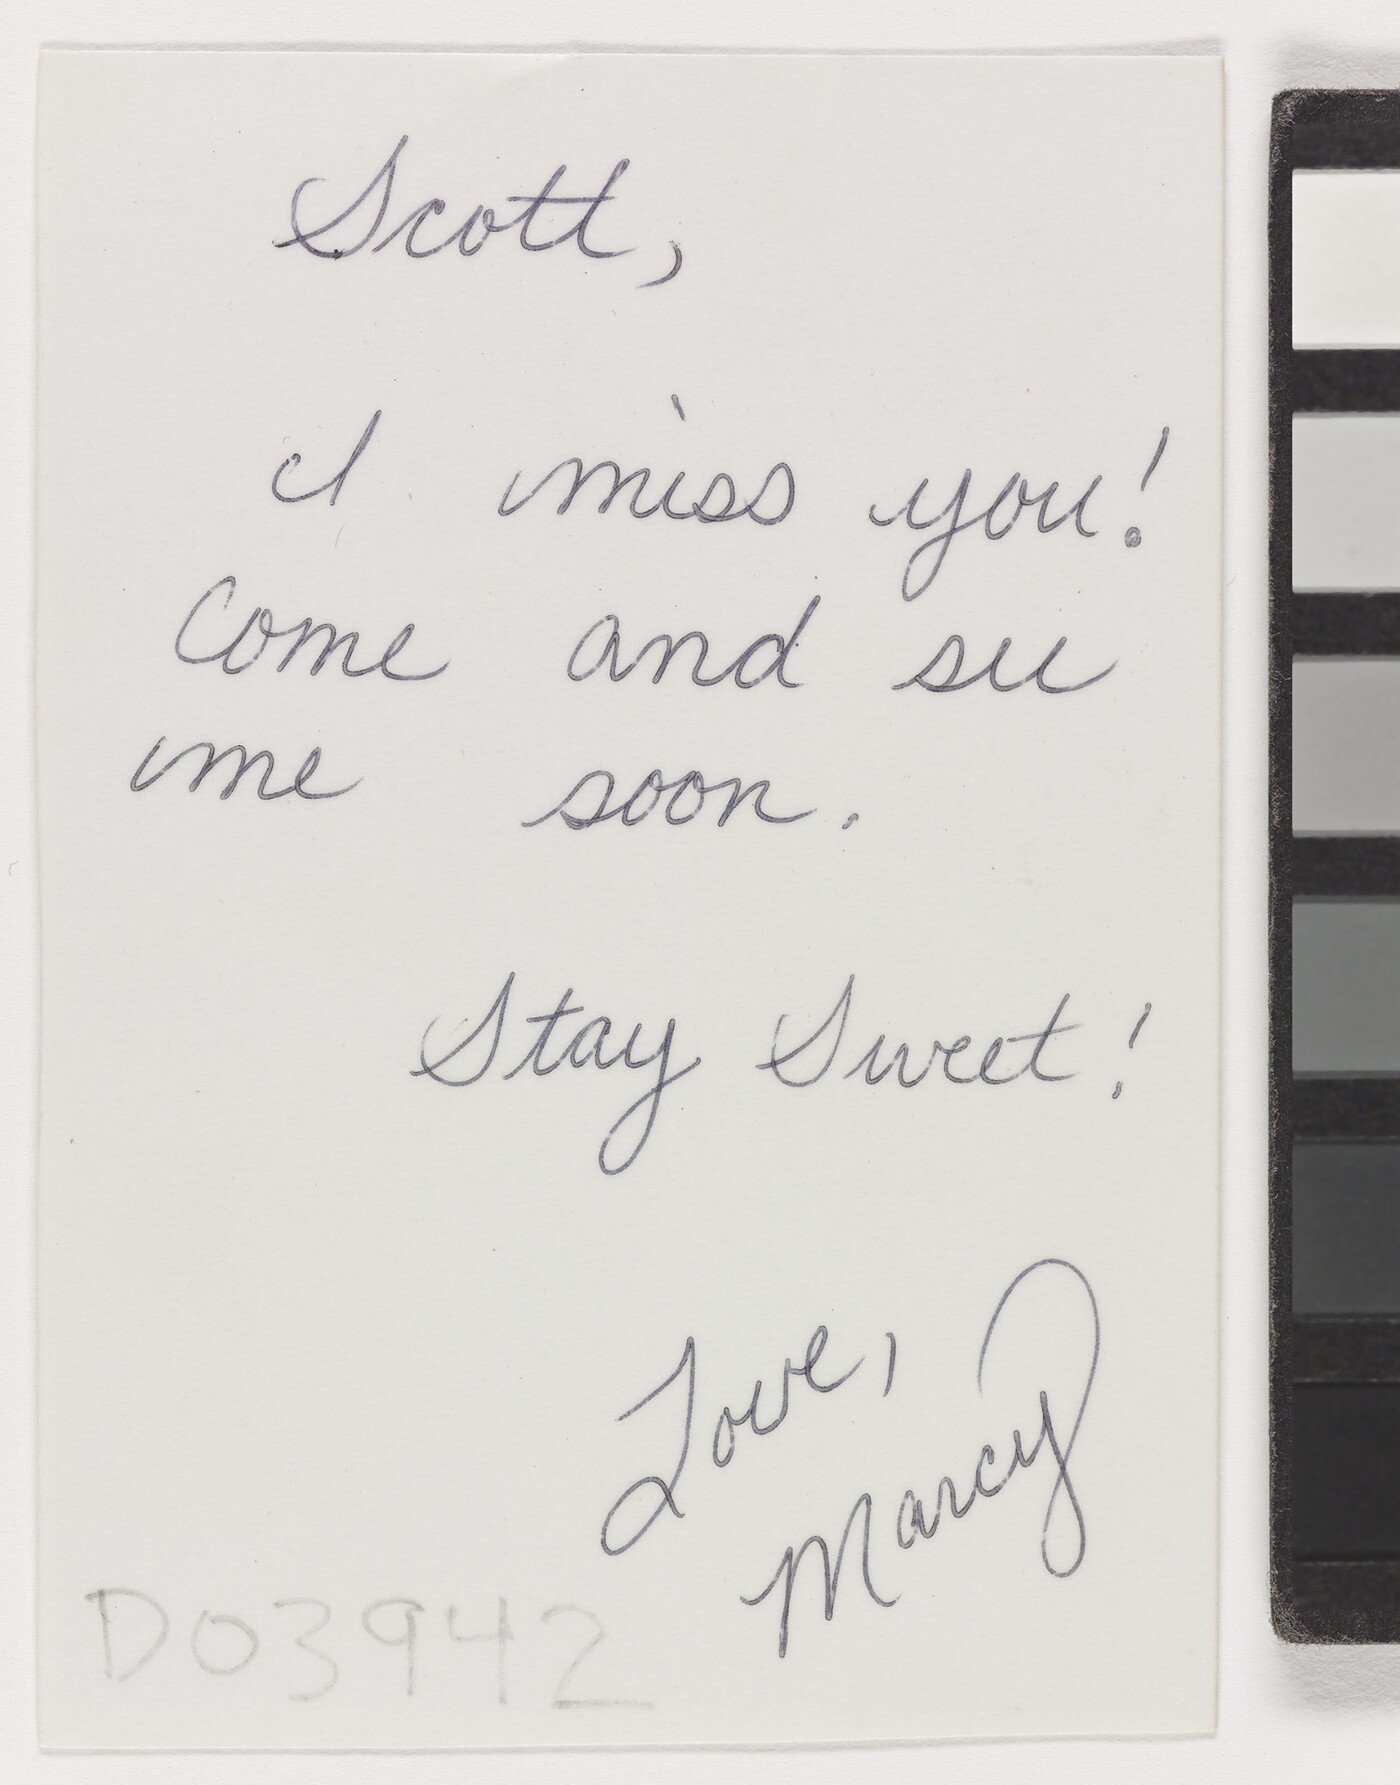 Scott,
I miss you!
Come and see
me soon.
Stay Sweet!
Love,
Marcy
D03942